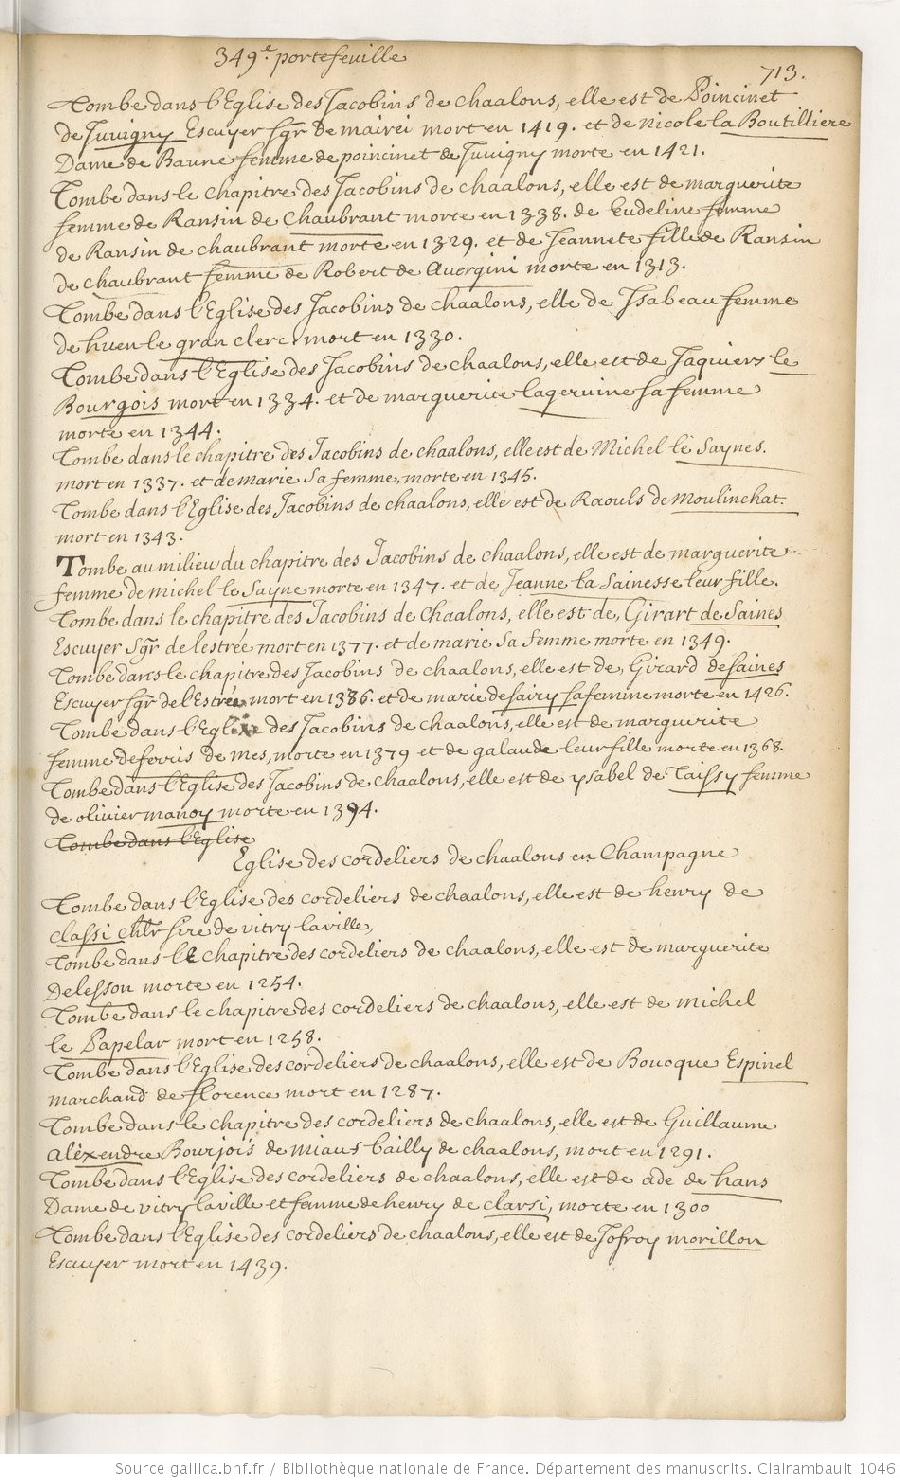 349e. portefeuille
713.
Tombe dans l'Eglise des Jacobins de chaalons, elle est de Poincinet
de Juvigny Escuyer sgr de mairei mort en 1419. et de nicole la Boutilliere
Dame de Baune femme de poincinet de Juvigny morte en 1421.
Tombe dans le chapitre des Jacobins de chaalons, elle est de marguerite
femme de Ransin de Chaubrant morte en 1338. de Eudeline femme
de Ransin de chaubrant morte en 1329. et de Jeannete fille de Ransin
de chaubrant femme de Robert de Avorgini morte en 1313.
Tombe dans l'Eglise des Jacobins de chaalons, elle de Isabeau femme
de huen le gran clerc mort en 1330.
Tombe dans l'Eglise des Jacobins de chaalons, elle est de Jaquiers le
Bourgois mort en 1334. et de marguerite lageruine sa femme
morte en 1344.
Tombe dans le chapitre des Jacobins de chaalons, elle est de Michel le Saynes.
mort en 1337. et de marie sa femme morte en 1345.
Tombe dans l'Eglise des Jacobins de chaalons, elle est de Raouls de Moulinchat.
mort en 1343.
Tombe au milieu du chapitre des Jacobins de chaalons, elle est de marguerite
femme de michel le Sayne morte en 1347. et de Jeanne la Sainesse leur fille.
Tombe dans le chapitre des Jacobins de Chaalons, elle est de Girart de Saines
Escuyer sgr de lestrée mort en 1377. et de marie sa femme morte en 1349.
Tombe dans le chapitre des Jacobins de chaalons, elle est de Girard de saines
Escuyer sgr de l'Estrée mort en 1386. et de marie de sairy sa femme morte en 1426.
Tombe dans l'Eglise des Jacobins de chaalons, elle est de marguerite
femme de ferris de mes, morte en 1379 et de galaude leur fille morte en 1368.
Tombe dans l'Eglise des Jacobins de chaalons, elle est de ysabel de Taissy femme
de olivier manoy morte en 1394.
Tombe dans l'Eglise
Eglise des cordeliers de chaalons en Champagne
Tombe dans l'Eglise des cordeliers de chaalons, elle est de henry de
classi chlr sire de vitry laville,
Tombe dans le chapitre des cordeliers de chaalons, elle est de marguerite
Delesson morte en 1254.
Tombe dans le chapitre des cordeliers de chaalons, elle est de michel
le Papelar mort en 1258.
Tombe dans l'Eglise des cordeliers de chaalons, elle est de Boucque Espinel
marchand de florence mort en 1287.
Tombe dans le chapitre des cordeliers de chaalons, elle est de Guillaume
alexendre Bourjois de miaus bailly de chaalons, mort en 1291.
Tombe dans l'Eglise des cordeliers de chaalons, elle est de ade de hans
Dame de vitry laville et femme de henry de clarsi, morte en 1300
Tombe dans l'Eglise des cordeliers de chaalons, elle est de Jofroy morillon
Escuyer mort en 1439.
Source gallica.bnf.fr / Bibliothèque nationale de France. Département des manuscrits. Clairambault 1046